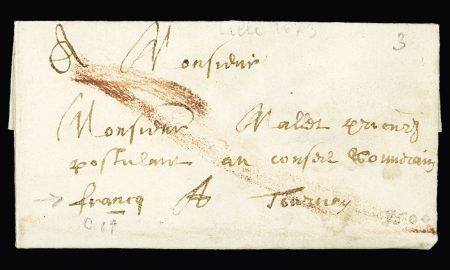 Lille 1673
3
A Monsieur
Monsieur Malet
postulant au conseil Souverain
francq A Tournay
C 19